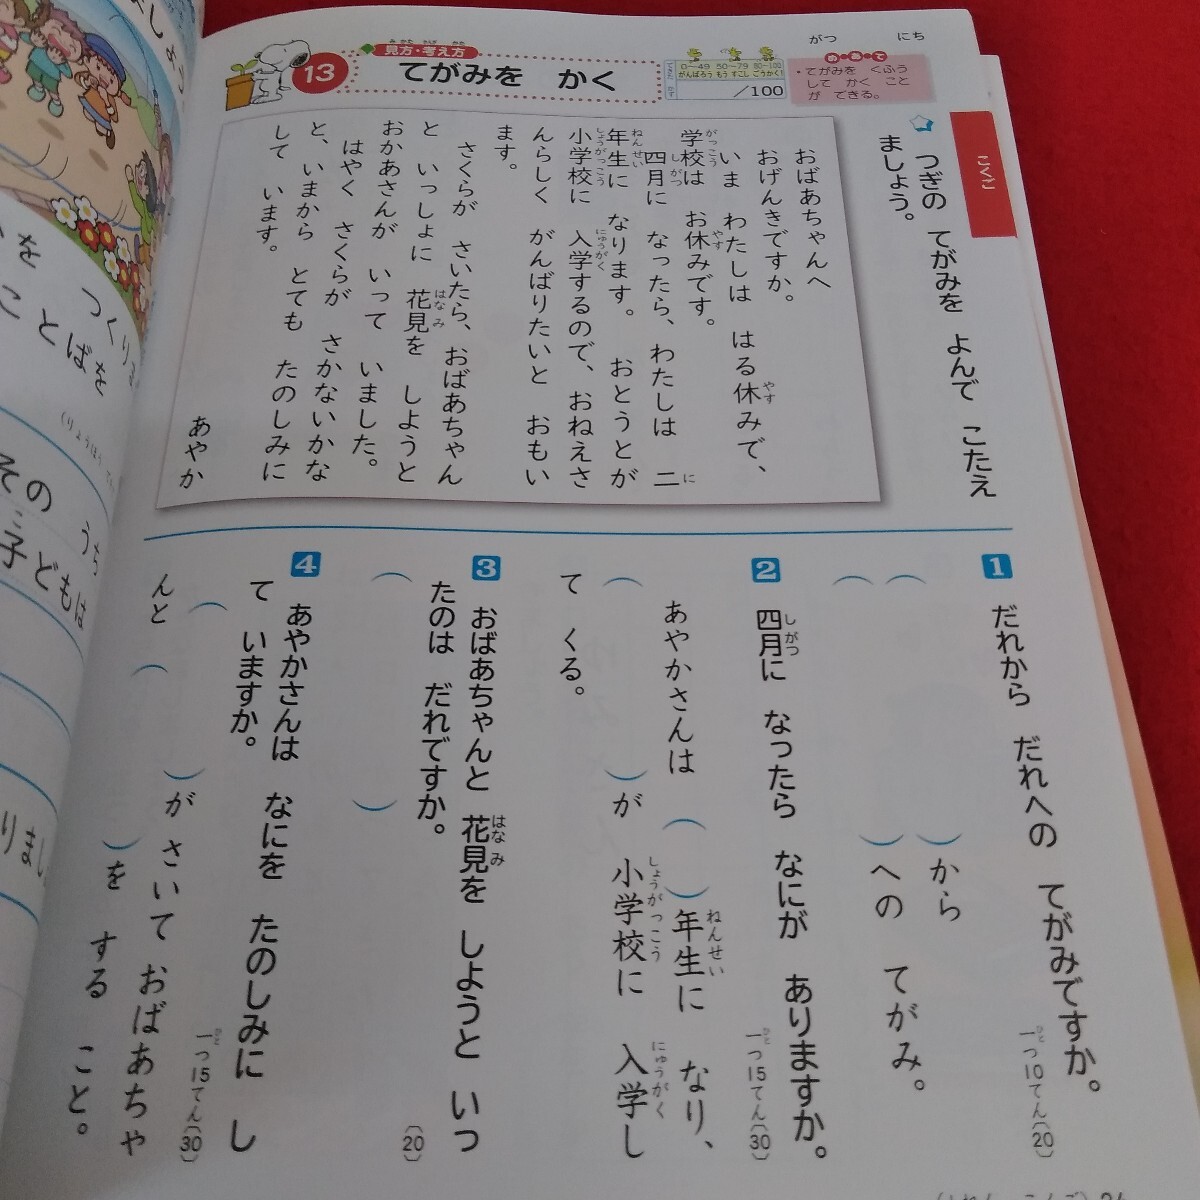 13
見方・考え方
てがみを かく
0〜49 50〜79 80〜100
がんばろう もう すこし ごうかく!
/100
がつ にち
めあて
・てがみを くふう
して かく こと
が できる。
こくご
つぎの てがみを よんで こたえ
ましょう。
おばあちゃんへ
おげんきですか。
いま わたしは はる休みで、
学校は お休みです。
四月に なったら、わたしは 二
年生に なります。 おとうとが
小学校に 入学するので、おねえさ
んらしく がんばりたいと おもい
ます。
さくらが さいたら、おばあちゃん
と いっしょに 花見を しようと
おかあさんが いって いました。
はやく さくらが さかないかな
と、いまから とても たのしみに
して います。
あやか
1 だれから だれへの てがみですか。
一つ10てん(20)
( )から
( )への てがみ。
2 四月に なったら なにが ありますか。
一つ15てん(30)
あやかさんは ( )年生に なり、
( )が 小学校に 入学し
て くる。
3 おばあちゃんと 花見を しようと いっ
たのは だれですか。
(20)
( )
4 あやかさんは なにを たのしみに し
て いますか。
一つ15てん(30)
( )が さいて おばあちゃ
んと ( )を する こと。
つくりま
ことばを
その うち
子どもは
りまし